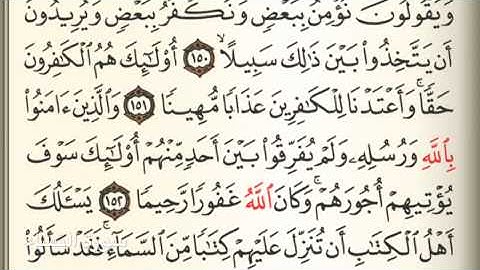 وَيَقُولُونَ نُؤْمِنُ بِبَعْضٍ وَنَكْفُرُ بِبَعْضٍ وَيُرِيدُونَ
أَن يَتَّخِذُوا۟ بَيْنَ ذَٰلِكَ سَبِيلًا ١٥٠ أُو۟لَـٰٓئِكَ هُمُ ٱلْكَـٰفِرُونَ
حَقًّا ۚ وَأَعْتَدْنَا لِلْكَـٰفِرِينَ عَذَابًا مُّهِينًا ١٥١ وَٱلَّذِينَ ءَامَنُوا۟
بِٱللَّهِ وَرُسُلِهِۦ وَلَمْ يُفَرِّقُوا۟ بَيْنَ أَحَدٍ مِّنْهُمْ أُو۟لَـٰٓئِكَ سَوْفَ
يُؤْتِيهِمْ أُجُورَهُمْ ۗ وَكَانَ ٱللَّهُ غَفُورًا رَّحِيمًا ١٥٢ يَسْـَٔلُكَ
أَهْلُ ٱلْكِتَـٰبِ أَن تُنَزِّلَ عَلَيْهِمْ كِتَـٰبًا مِّنَ ٱلسَّمَآءِ ۚ فَقَدْ سَأَلُوا۟